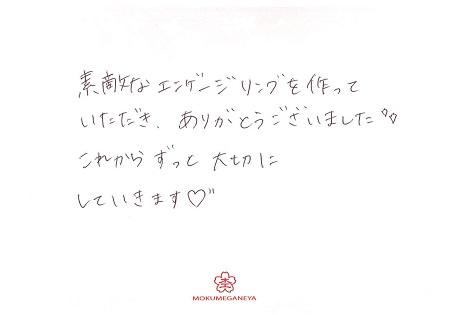 素敵なエンゲージリングを作って
いただき、ありがとうございました
これから ずっと 大切に
していきます♡"
MOKUMEGANEYA